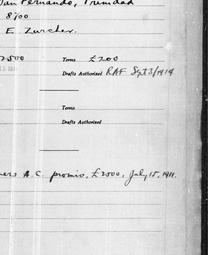 San Fernando, Trinidad
8400
E. Zurcher.
2500 Terms £200
Drafts Authorized RAF Sgt 3/1919
Terms
Drafts Authorized
ners A.C. promis. £2500, July 15, 1911.